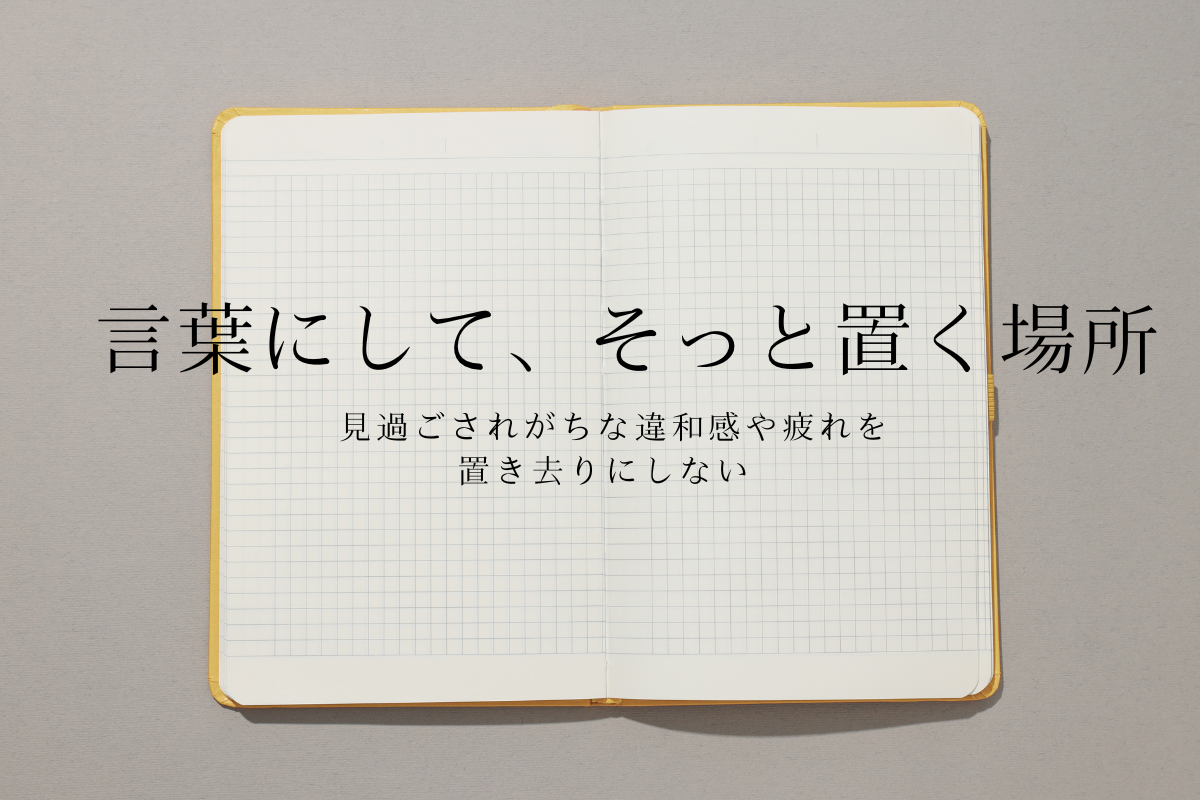 言葉にして、そっと置く場所
見過ごされがちな違和感や疲れを
置き去りにしない